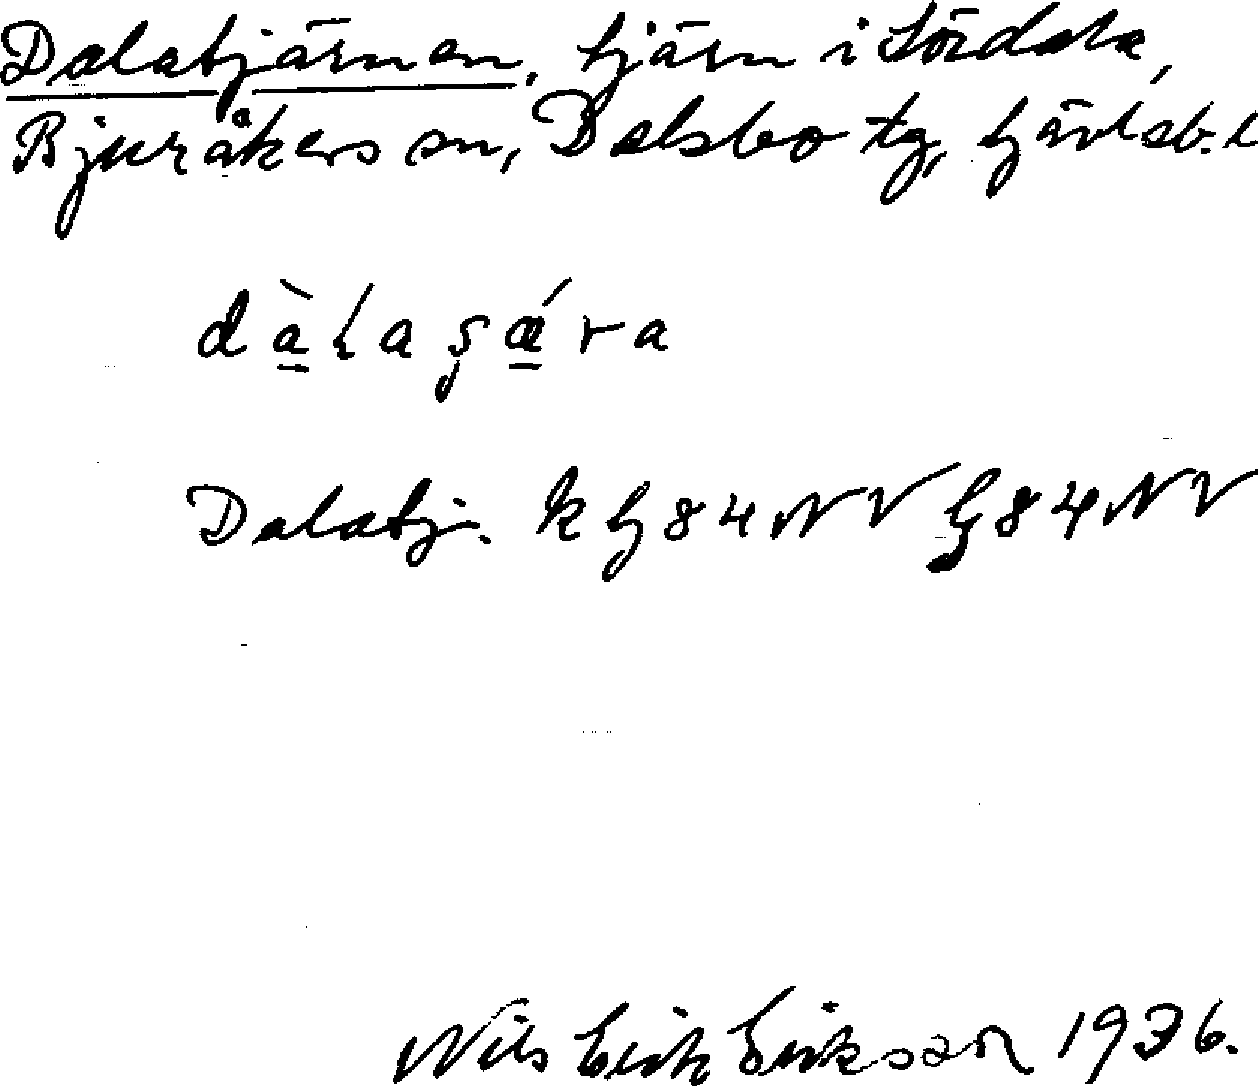 Dalatjärnen, tjärn i Sördala,
Bjuråkers sn, Delsbo tg, Gävleb. l
dàlaşǽra
Dalatj. k G84NV G84NV
Nils Erik Eriksson 1936.